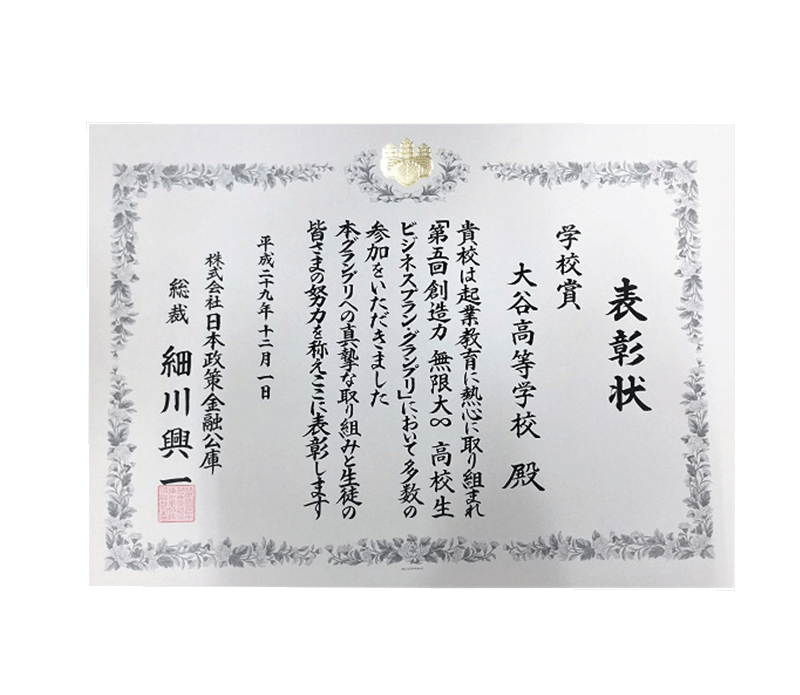 表彰状
学校賞
大谷高等学校 殿
貴校は起業教育に熱心に取り組まれ
「第五回創造力 無限大∞ 高校生
ビジネスプラン・グランプリ」において多数の
参加をいただきました
本グランプリへの真摯な取り組みと生徒の
皆さまの努力を称えここに表彰します
平成二十九年十二月一日
株式会社日本政策金融公庫
総裁 細川興一